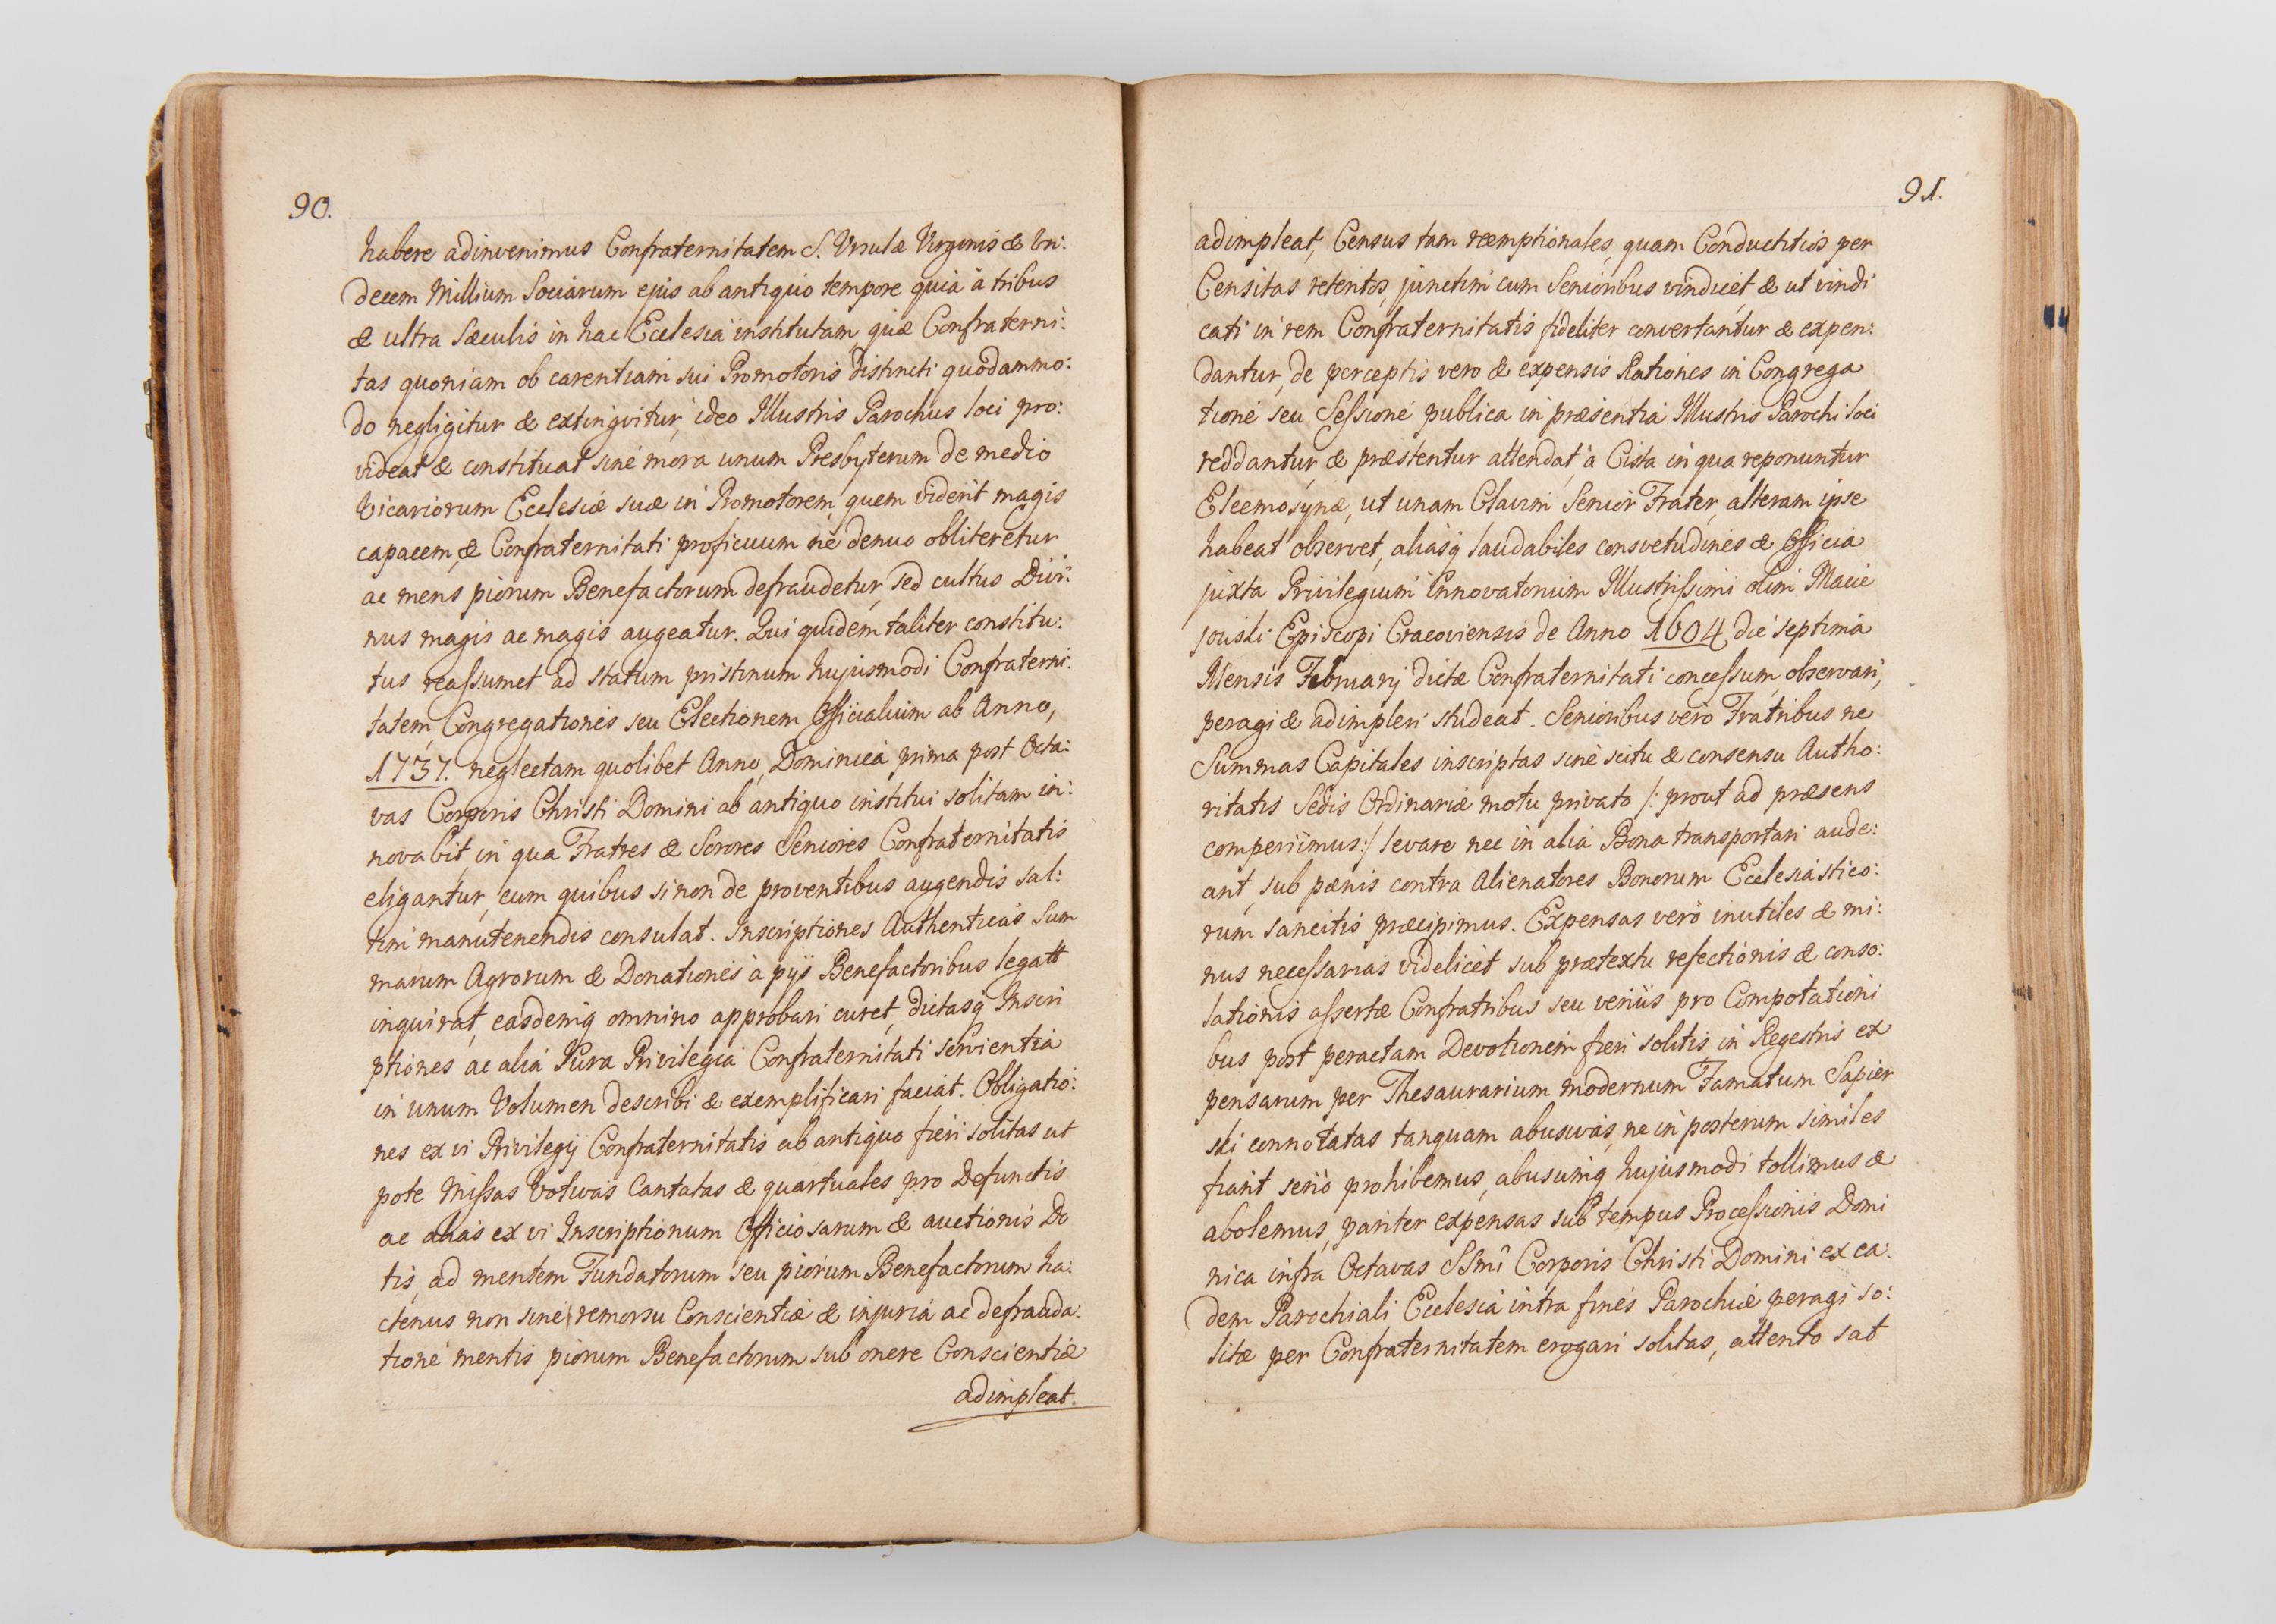 90.
habere adinvenimus Confraternitatem S. Ursulæ Virginis & Un:
decem Millium Sociarum ejus ab antiquo tempore quia à tribus
& ultra Sæculis in hac Ecclesia institutam, quæ Confraterni:
tas quoniam ob carentiam sui Promotoris distincti quodammo:
do negligitur & extingvitur, ideo Illustris Parochus loci pro:
videat & constituat sine mora unum Presbyterum de medio
Vicariorum Ecclesiæ suæ in Promotorem, quem viderit magis
capacem, & Confraternitati proficuum ne denuo obliteretur
ac mens piorum Benefactorum defraudetur, sed cultus Divi:
nus magis ac magis augeatur. Qui quidem taliter constitu:
tus reassumet ad statum pristinum hujusmodi Confraterni:
tatem, Congregationes seu Electionem Officialium ab Anno,
1737. neglectam quolibet Anno, Dominica prima post Octa:
vas Corporis Christi Domini ab antiquo institui solitam in:
novabit, in qua Fratres & Sorores Seniores Confraternitatis
eligantur, cum quibus si non de proventibus augendis sal:
tim manutenendis consulat. Inscriptiones Authenticas Sum
marum Agrorum & Donationes à pijs Benefactoribus legatt
inquirat, easdemq omnino approbari curet, dictasq Inscri
ptiones ac alia Jura Privilegia Confraternitati servientia
in unum Volumen describi & exemplificari faciat. Obligatio:
nes ex vi Privilegij Confraternitatis ab antiquo fieri solitas ut
pote Missas Votivas Cantatas & quartuales pro Defunctis
ac alias ex vi Inscriptionum Officiosarum & auctionis Do
tis, ad mentem Fundatorum seu piorum Benefactorum ha:
ctenus non sine remorsu Conscientiæ & injuria ac defrauda:
tione mentis piorum Benefactorum sub onere Conscientiæ
adimpleat.
91.
adimpleat, Census tam reemptionales, quam Conductitios per
Censitas retentos, junctim cum Senioribus vindicet, & ut vindi
cati in rem Confraternitatis fideliter convertantur & expen:
dantur, de perceptis vero & expensis Rationes in Congrega
tione seu Sessione publica in præsentia Illustris Parochi loci
reddantur, & præstentur attendat, à Cista in qua reponuntur
Eleemosynæ, ut unam Clavim Senior Frater, alteram ipse
habeat observet, aliasq laudabiles consvetudines & Officia
juxta Privilegium Innovatorium Illustrissimi olim Macie
jouski Episcopi Cracoviensis de Anno 1604 die septima
Mensis Februarij dictæ Confraternitati concessum, observari,
peragi & adimpleri studeat. Senioribus vero Fratribus ne
Summas Capitales inscriptas sine scitu & consensu Autho:
ritatis Sedis Ordinariæ motu privato /: prout ad præsens
comperiimus:/ levare nec in alia Bona transportari aude:
ant, sub pænis contra Alienatores Bonorum Ecclesiastico:
rum sancitis præcipimus. Expensas vero inutiles & mi:
nus necessarias videlicet sub prætextu refectionis & conso:
lationis assertæ Confratribus seu verius pro Compotationi
bus post peractam Devotionem fieri solitis, in Regestris ex
pensarum per Thesaurarium modernum Famatum Sapier
ski connotatas tanquam abusivas, ne in posterum similes
fiant serio prohibemus, abusumq hujusmodi tollimus &
abolemus, pariter expensas sub tempus Processionis Domi
nica infra Octavas SSmi Corporis Christi Domini ex ea:
dem Parochiali Ecclesia intra fines Parochiæ peragi so:
litæ per Confraternitatem erogari solitas, attento sat